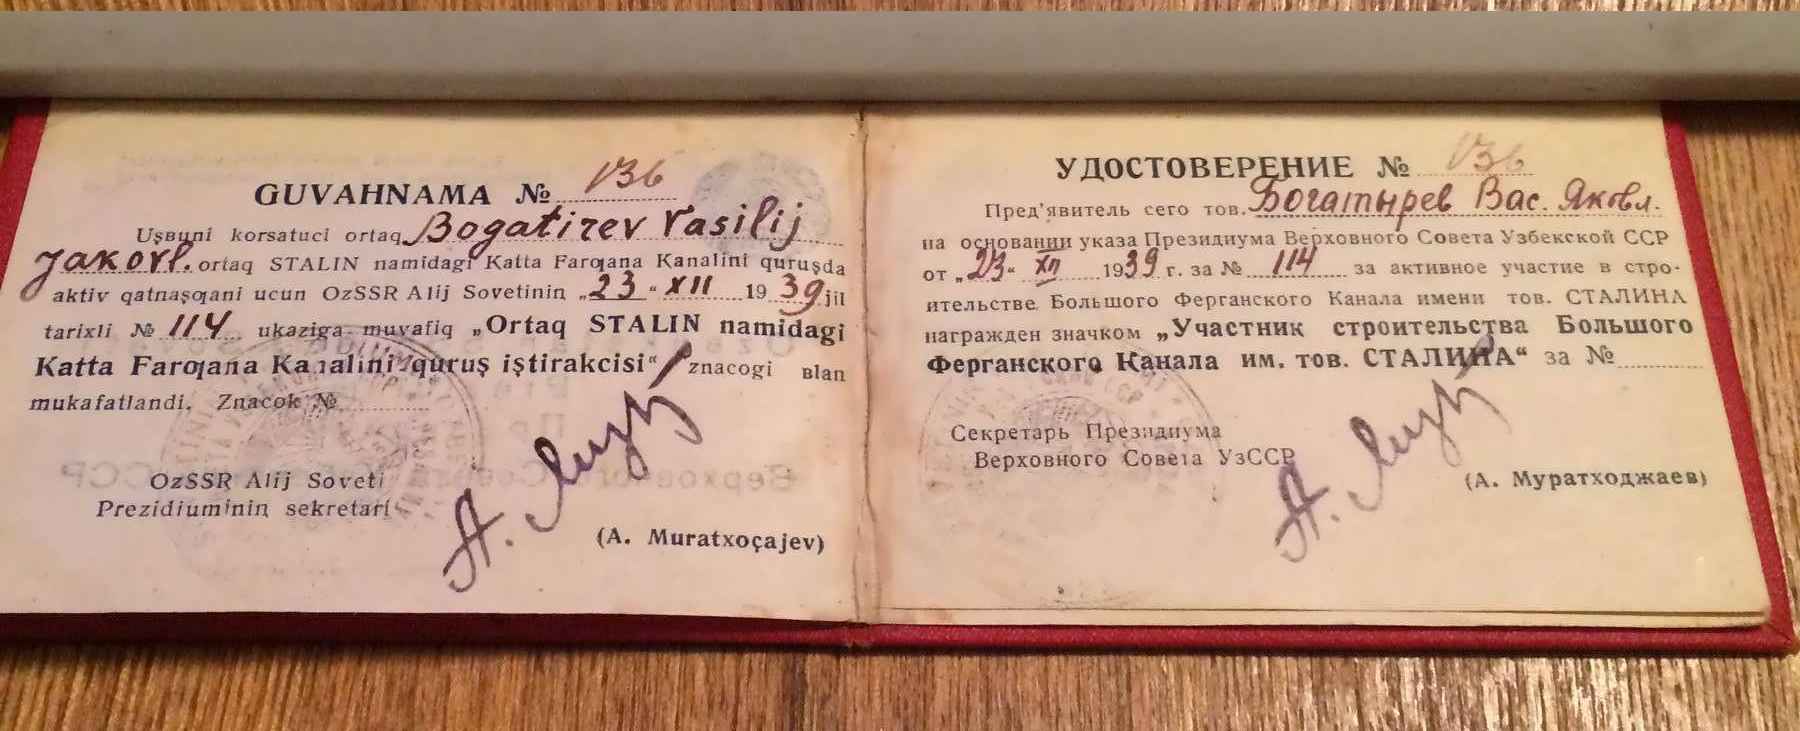 GUVAHNAMA № 136
Uşвuni korsatuci ortaq Bogatirev Vasilij
Jakovl. ortaq STALIN namidagi Katta Farƣana Kanalini quruşda
aktiv qatnaşƣani ucun OzSSR Alij Sovetinin „23“ XII 1939 jil
tarixli № 114 ukaziga muvafiq „Ortaq STALIN namidagi
Katta Farƣana Kanalini quruş iştirakcisi“ znacogi вlan
mukafatlandi. Znacok №
OzSSR Alij Soveti
Prezidiuminin sekretari
(A. Muratxoçajev)
УДОСТОВЕРЕНИЕ № 136
Пред’явитель сего тов. Богатырев Вас. Яковл.
на основании указа Президиума Верховного Совета Узбекской ССР
от „23“ XII 1939 г. за № 114 за активное участие в стро-
ительстве Большого Ферганского Канала имени тов. СТАЛИНА
награжден значком „Участник строительства Большого
Ферганского Канала им. тов. СТАЛИНА“ за №
Секретарь Президиума
Верховного Совета УзССР
(А. Муратходжаев)